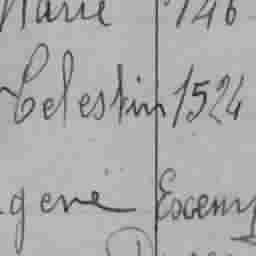 Marie 746
Celestin 1524
gene Exem